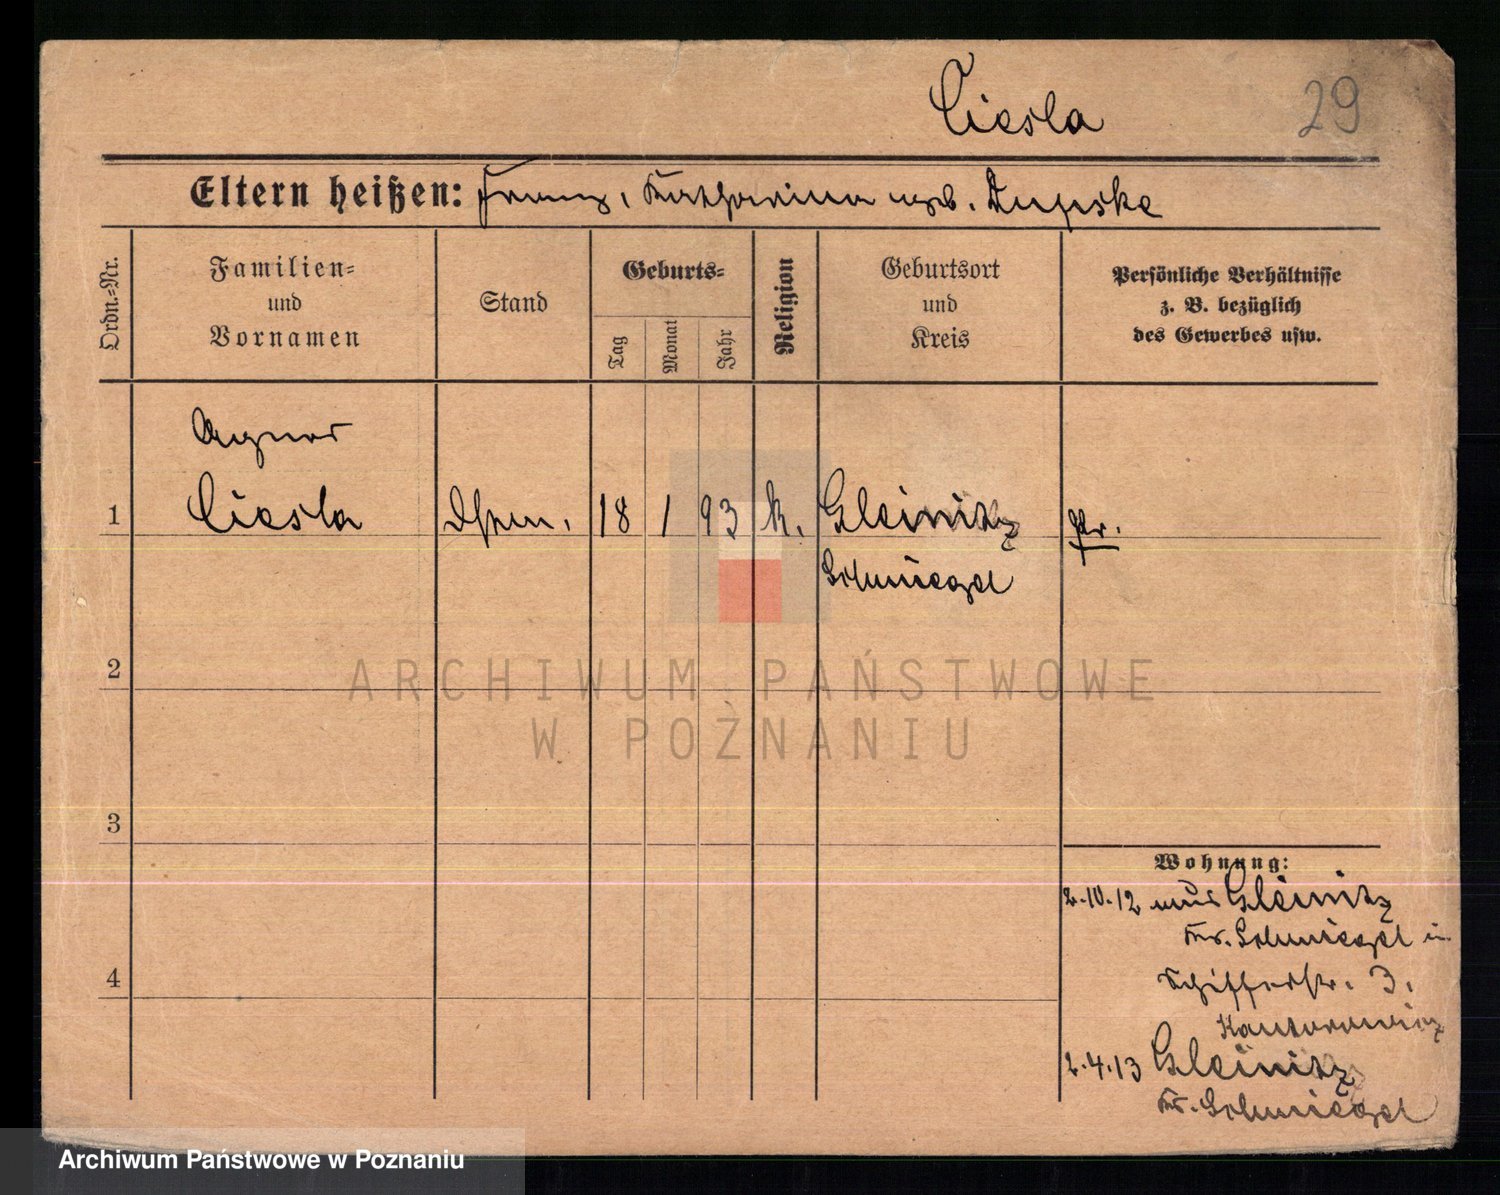 Ciesla
29
Eltern heißen: Franz, Katharina geb. Dupska
Ordn.-Nr.
Familien- und Vornamen
Stand
Geburts-
Tag
Monat
Jahr
Religion
Geburtsort und Kreis
Persönliche Verhältnisse z. B. bezüglich des Gewerbes usw.
Agnes
1 Ciesla 18 1 93 k. Gleinitz Pr.
Schmiegel
2
ARCHIWUM PAŃSTWOWE
W POZNANIU
3
Wohnung:
2.10.12 aus Gleinitz
Kr. Schmiegel in
4
Schifferstr. 3.
Kantorowicz
2.4.13 Gleinitz
Kr. Schmiegel
Archiwum Państwowe w Poznaniu